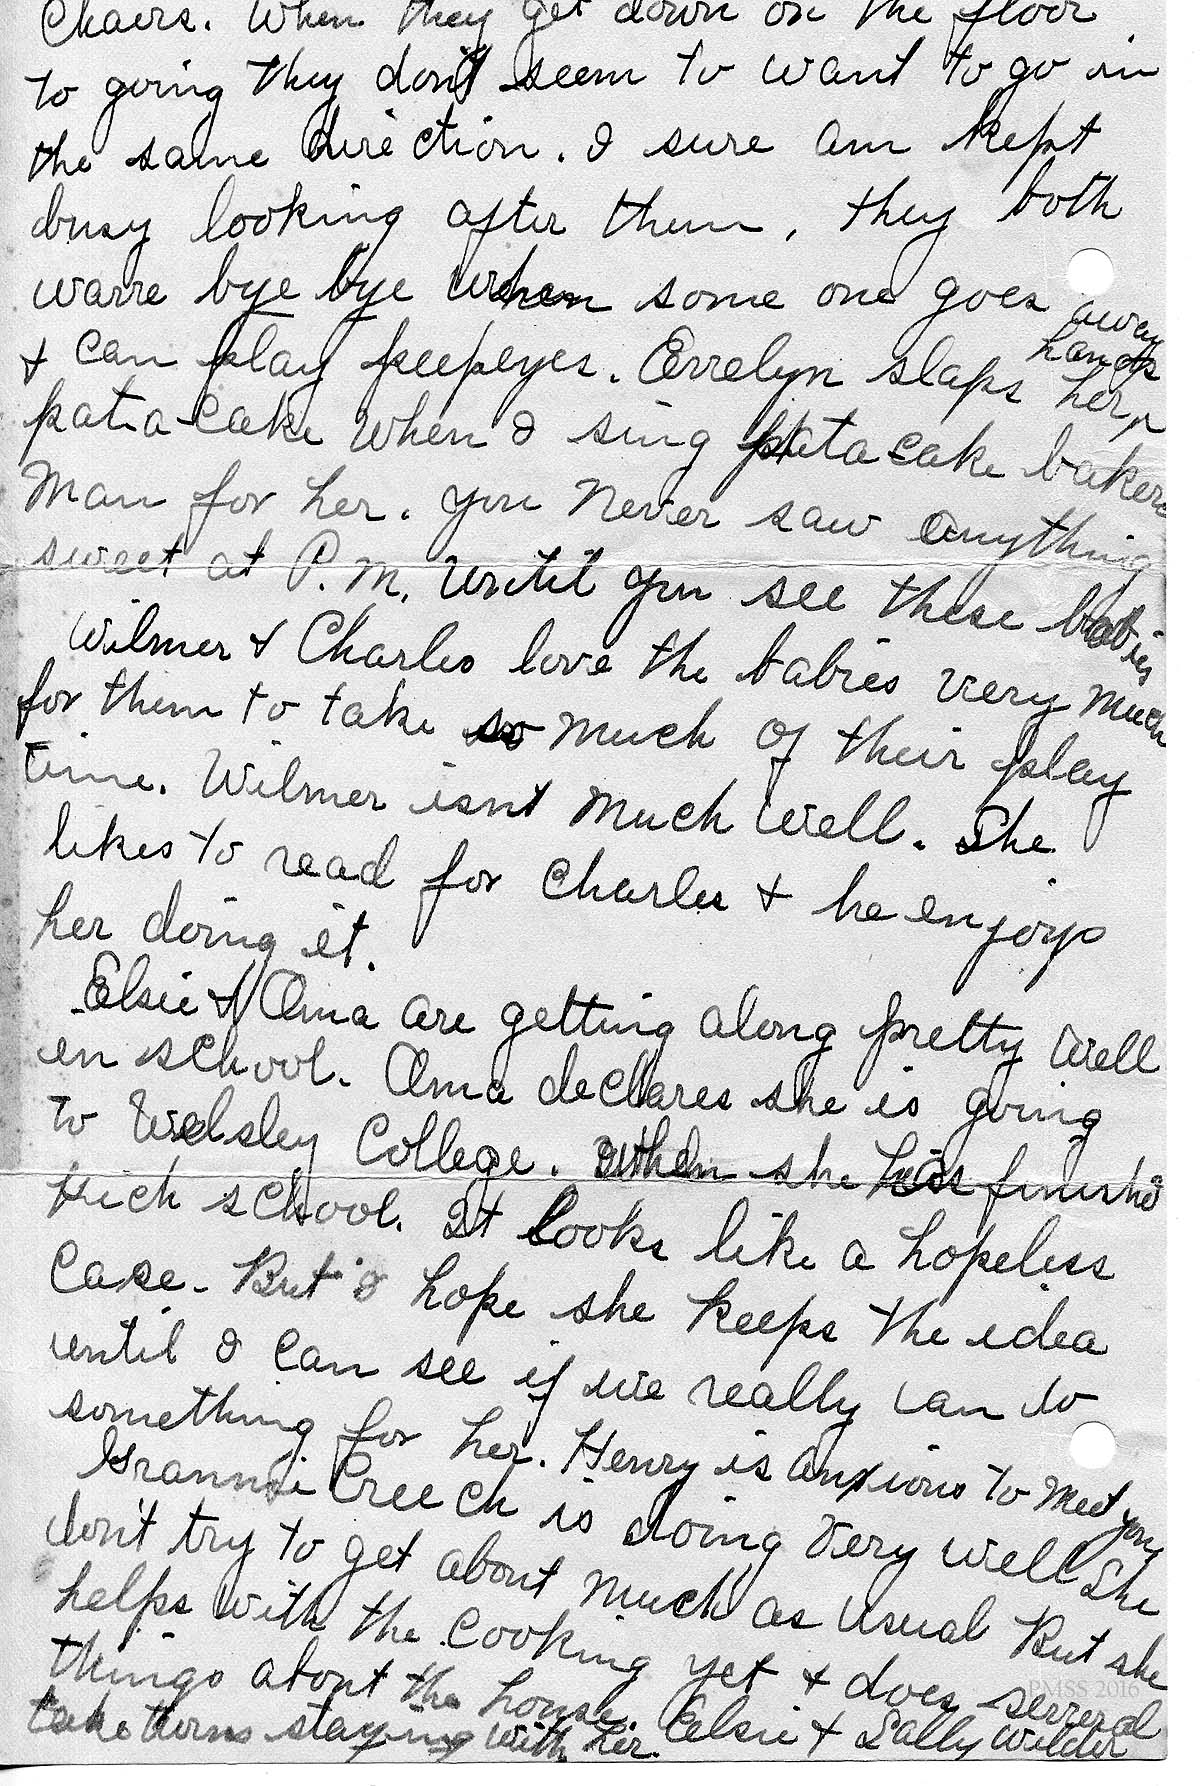 Chairs. When they get down on the floor
to going they don't seem to want to go in
the same direction. I sure am kept
busy looking after them, they both
warve bye bye when some one goes away
& can play peepeyes. Errelyn slaps her hands
pat-a-cake when I sing patacake bakers
Man for her. you never saw anything
sweet at P. M. until you see these babies
Wilmer & Charles love the babies very much
for them to take so much of their play
time. Wilmer isnt much well. She
likes to read for Charles & he enjoys
her doing it.
Elsie & Oma are getting along pretty well
en school. Oma declares she is going
to Welsley College. When she has finishd
hich school. It looks like a hopeless
Case. But I hope she keeps the idea
until I can see if we really can do
something for her. Henry is anxious to meet you
Granny Creech is doing very well She
don't try to get about much as usual But she
helps with the cooking yet & does serreral
things about the house. Elsie & Sally Wilder
take turns staying with her.
PMSS 2016